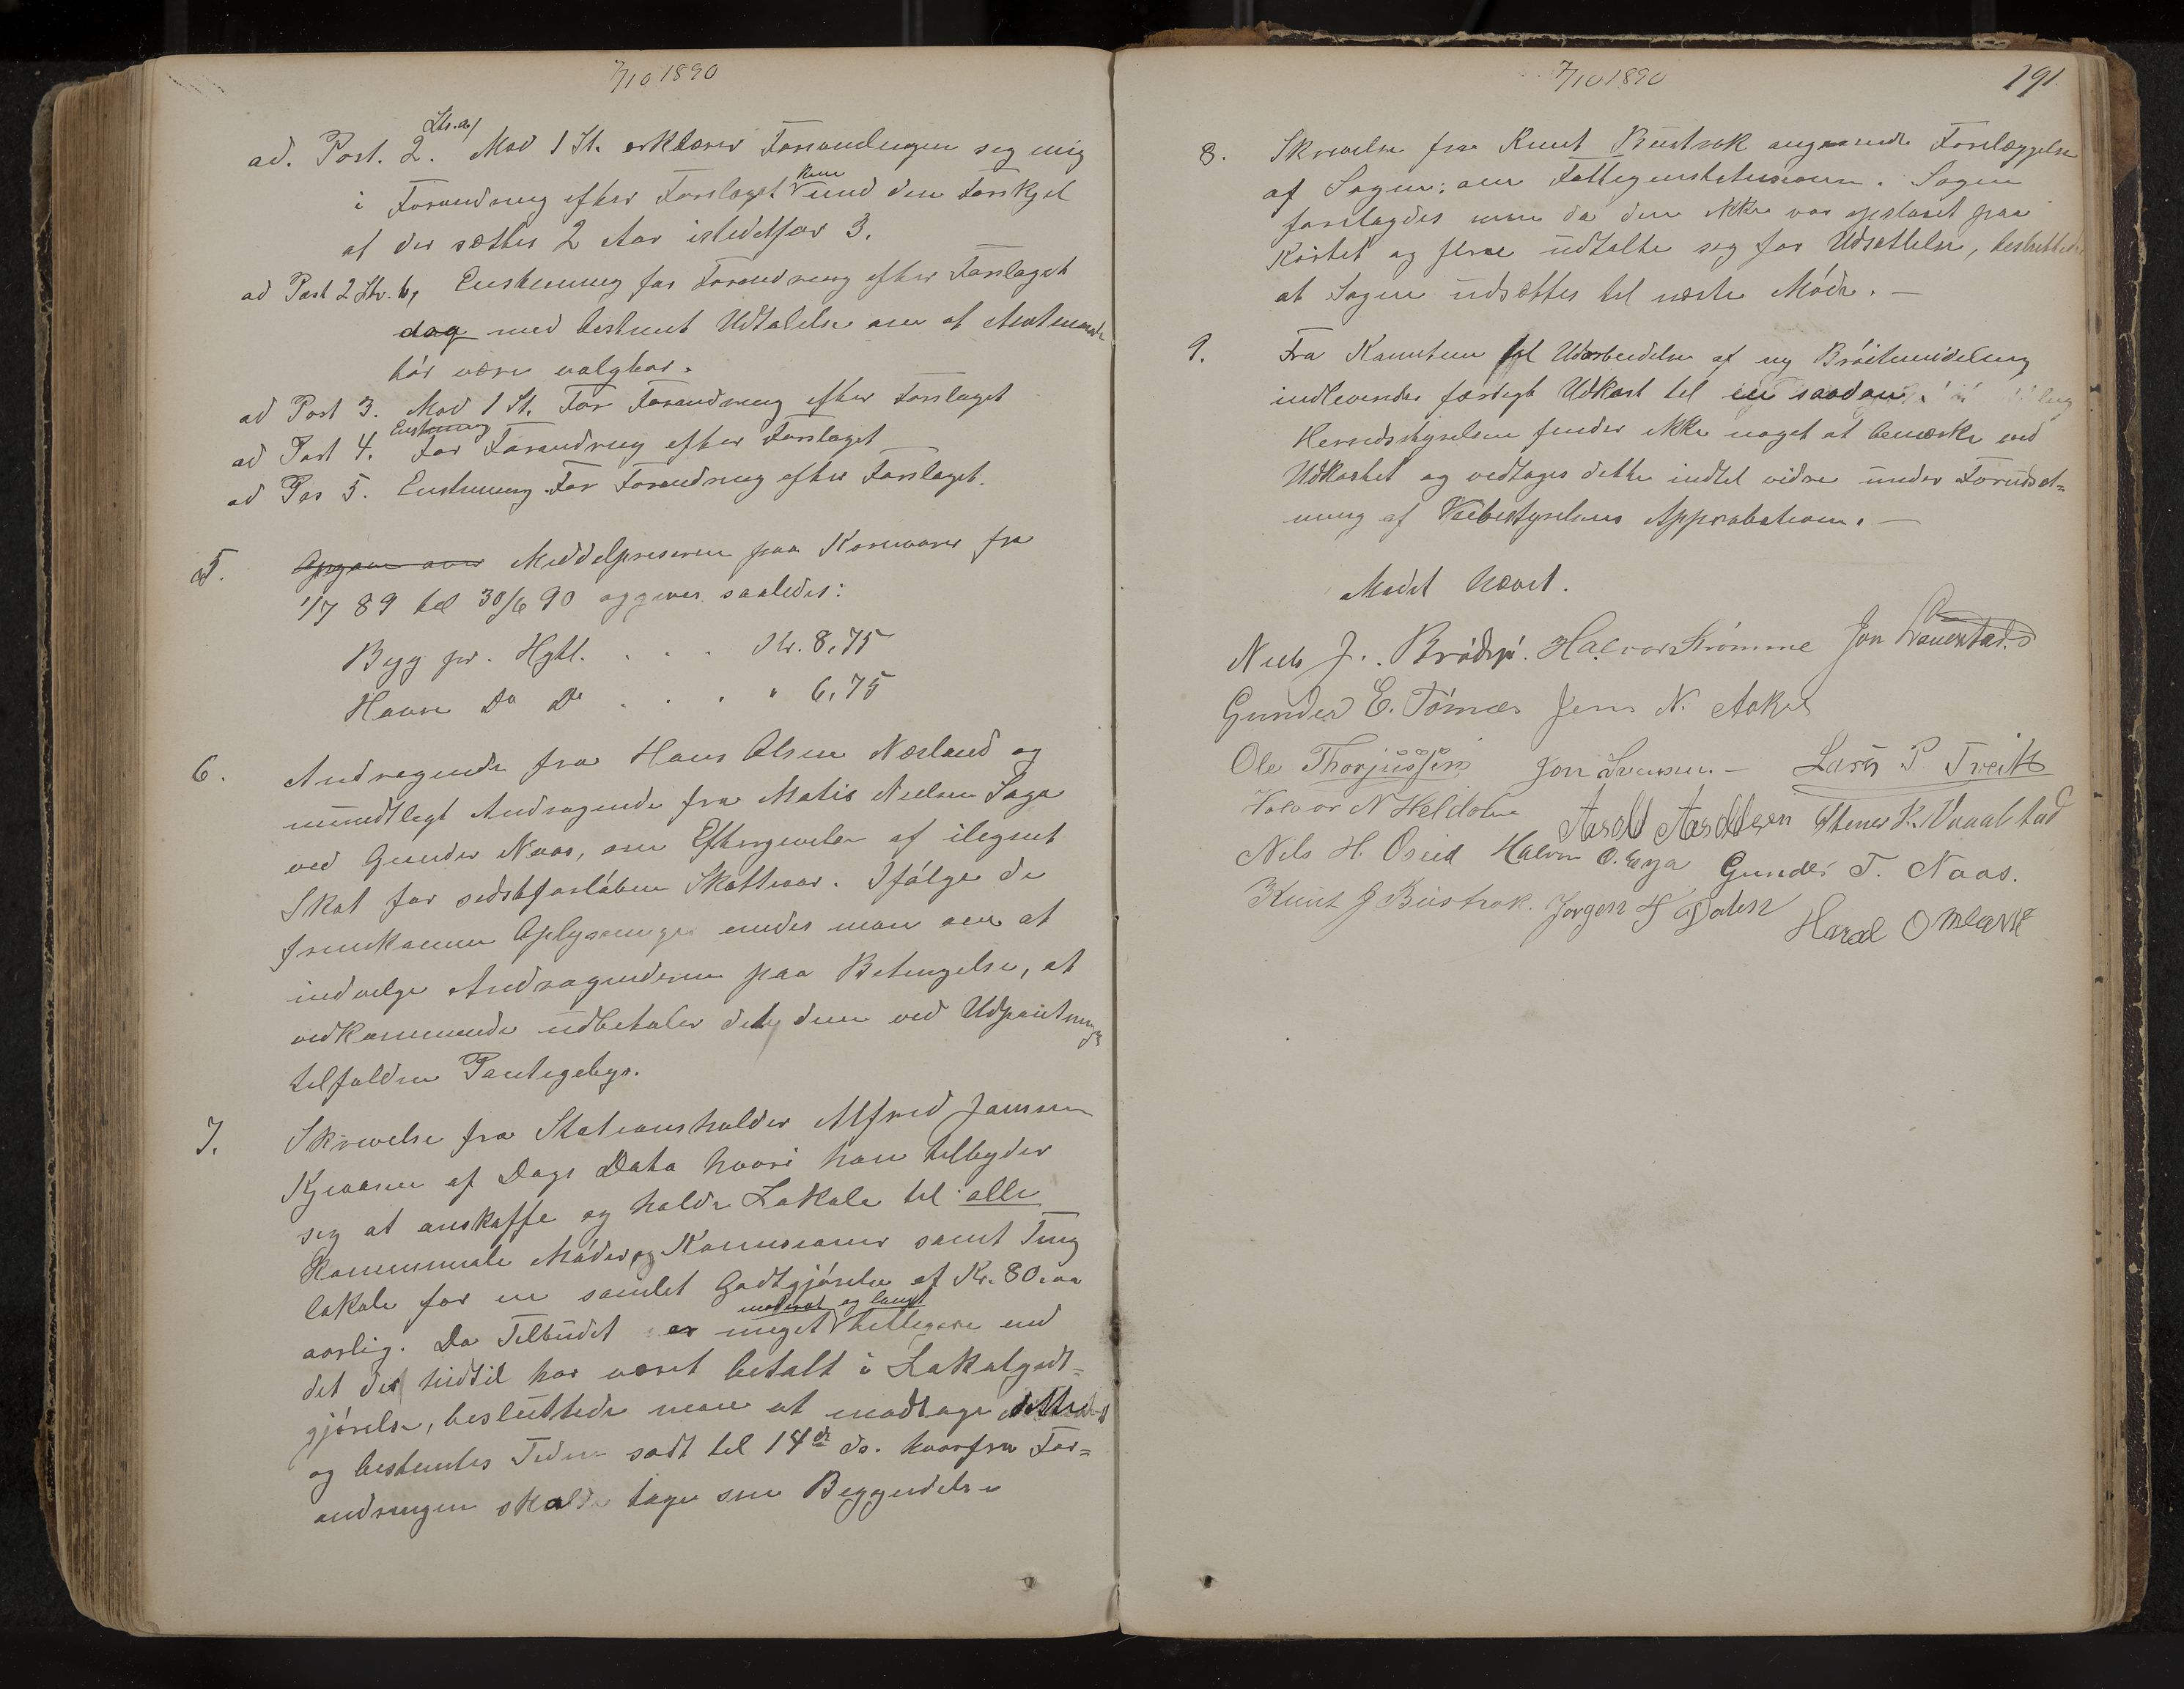 7/10 1890
ad. Post. 2. Ltr. a/ Mod 1 St. erklærer Forsamlingen seg enig
i Forandring efter Forslaget kun med den Forskjel
at der sættes 2 Aar istedetfor 3.
ad Post 2 Ltr. b, Enstemmig for Forandring efter Forslaget
dog med bestemt Udtalelse om at Amtmand
bør være valgbar.
ad Post 3. Mod 1 St. For Forandring efter Forslaget
ad Post 4. Enstemmig For Forandring efter Forslaget
ad Pos 5. Enstemmig For Forandring efter Forslaget.
5. Opgave over Middelpriserne paa Kornvarer fra
1/7 89 til 30/6 90 opgives saaledes:
Byg pr. Hgtl. . . . Kr. 8,75
Havre Do Do . . . " 6,75
6. Andragende fra Hans Olsen Næsland og
mundtlegt Andragende fra Matis Nielsen Saga
ved Gunder Naas, om Eftergivelse af ilignet
Skat for sidstforløbne Skatteaar. Ifølge de
fremkomne Oplysninger enedes man om at
indvilge Andragenderne paa Betingelse, at
vedkommende udbetaler det, dem ved Udpantninger
tilfaldne Pantegebyr.
7. Skrivelse fra Stationsholder Alfred Jansen
Kjevaren af Dags Dato hvori han tilbyder
seg at anskaffe og holde Lokale til alle
Kommunale Møder, og Kommisioner samt Ting
lokale for en samlet Godtgjørelse af Kr. 80.oo
aarlig. Da Tilbudet er meget moderat og langt billigere end
det der hidtil har været betalt i Lokalgodt=
gjørelse, besluttede man at modtage dette
og bestemtes Tiden sadt til 14de ds. hvorfra For=
andringen skulde tage sin Begyndelse
7/10 1890
191.
8. Skrivelse fra Knut Bustrak angaaende Forelæggelse
af Sagen: om Fattigenstitusionen. Sagen
forelagdes men da den ikke var opslaaet paa
Kortet og flere udtalte seg for Udsættelse, besluttedes
at Sagen udsættes til næste Møde. —
9. Fra Komiteen til Udarbeidelse af ny Brøiteinddeling
indleveredes færdigt Udkast til en saadan.
Herredsstyrelsen finder ikke noget at bemærke ved
Udkastet og vedtages dette indtil videre under Forudsæt=
ning af Veibestyrelsens Approbation. —
Mødet hævet.
Niels J. Brødsjø. Halvor Strømme Jon Lauvstad
Gunder E. Tørnæs Jens N. Aakre
Ole Thorjussen Jon Svensen. — Lars P. Treit
Halvor N Heldalen Aasold Aasoldsen Stener K. Vraalstad
Nils H. Oseid Halvor O. Egja Gunder T. Naas.
Knut J Bustrak. Jørgen H Dalen Haral Omland